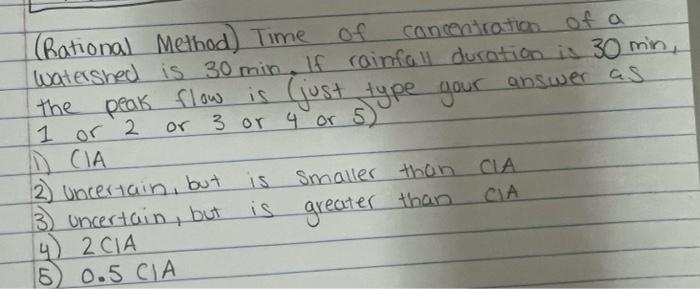 (Rational Method) Time of concentration of a
watershed is 30 min. If rainfall duration is 30 min,
the peak flow is (just type your answer as
1 or 2 or 3 or 4 or 5)
1) CIA
2) uncertain, but is smaller than CIA
3) uncertain, but is greater than CIA
4) 2 CIA
5) 0.5 CIA